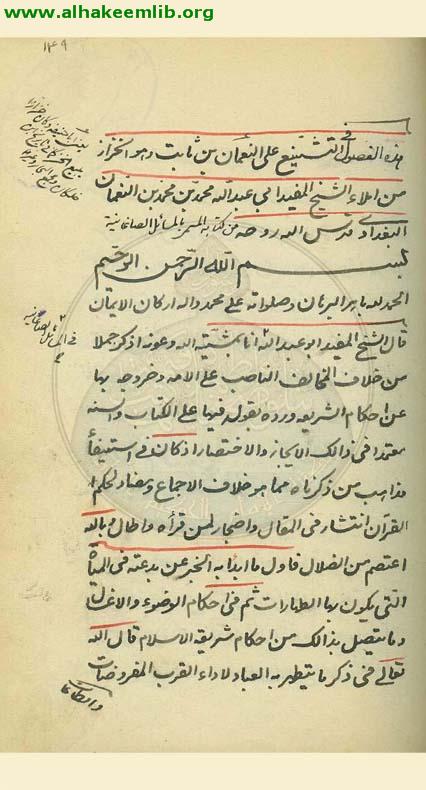 www.alhakeemlib.org
١٤٩
هذه الفصول في التشنيع على النعمان بن ثابت وهو الخزاز
من املاء الشيخ المفيد ابي عبدالله محمد بن محمد بن النعمان
البغدادي قدس الله روحه من كتابه المسمى بالمسائل الصاغانية
بسم الله الرحمن الرحيم
الحمد لله باهر البرهان وصلواته على محمد واله اركان الايمان
قال الشيخ المفيد ابو عبد الله انا بمشيئة الله وعونه اذكر جملا
من خلاف المخالف الناصب على الامه وخروجه بها
عن احكام الشريعه ورده بقوله فيها على الكتاب والسنه
معتمدا في ذالك الايجاز والاختصار اذ كان في استيفأ
مذاهب من ذكرناه مما هو خلاف الاجماع ومضاد لحكم
القرآن انتشار في المقال واضجار لمن قرأه واطال بالله
اعتصم من الضلال فاول ما ابدأ به الخبر عن بدعته في المياه
التي يكون بها الطهارات ثم في احكام الوضوء والاغسال
وما يتصل بذالك من احكام شريعة الاسلام قال الله
تعالى في ذكر ما يتطهر به العباد لاداء القرب المفروضات